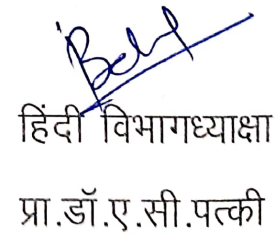 हिंदी विभागध्याक्षा
प्रा.डॉ.ए.सी.पत्की